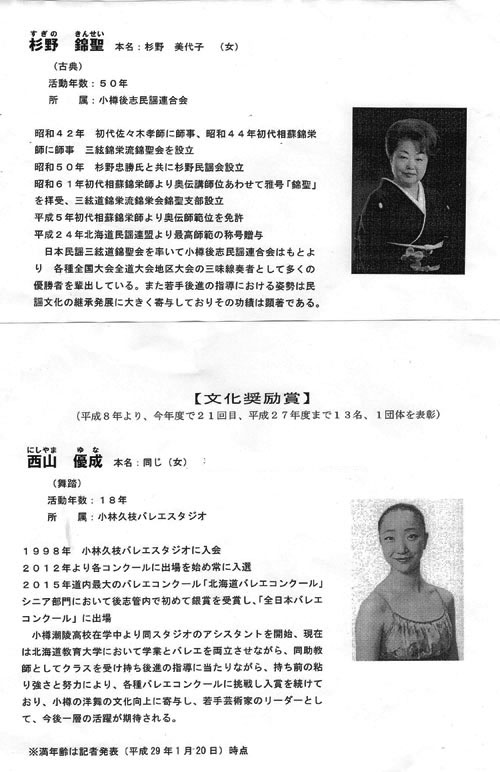 すぎの きんせい
杉野 錦聖 本名：杉野 美代子 （女）
（古典）
活動年数：５０年
所 属：小樽後志民謡連合会
昭和４２年 初代佐々木孝師に師事、昭和４４年初代相蘇錦栄
師に師事 三絃錦栄流錦聖会を設立
昭和５０年 杉野忠勝氏と共に杉野民謡会設立
昭和６１年初代相蘇錦栄師より奥伝講師位あわせて雅号「錦聖」
を拝受、三絃道錦栄流錦栄会錦聖支部設立
平成５年初代相蘇錦栄師より奥伝師範位を免許
平成２４年北海道民謡連盟より最高師範の称号贈与
日本民謡三絃道錦聖会を率いて小樽後志民謡連合会はもとよ
り 各種全国大会全道大会地区大会の三味線奏者として多くの
優勝者を輩出している。また若手後進の指導における姿勢は民
謡文化の継承発展に大きく寄与しておりその功績は顕著である。
【文化奨励賞】
（平成８年より、今年度で２１回目、平成２７年度まで１３名、１団体を表彰）
にしやま ゆな
西山 優成 本名：同じ（女）
（舞踏）
活動年数：１８年
所 属：小林久枝バレエスタジオ
１９９８年 小林久枝バレエスタジオに入会
２０１２年より各コンクールに出場を始め常に入選
２０１５年道内最大のバレエコンクール「北海道バレエコンクール」
シニア部門において後志管内で初めて銀賞を受賞し、「全日本バレエ
コンクール」に出場
小樽潮陵高校在学中より同スタジオのアシスタントを開始、現在
は北海道教育大学において学業とバレエを両立させながら、同助教
師としてクラスを受け持ち後進の指導に当たりながら、持ち前の粘
り強さと努力により、各種バレエコンクールに挑戦し入賞を続けて
おり、小樽の洋舞の文化向上に寄与し、若手芸術家のリーダーとし
て、今後一層の活躍が期待される。
※満年齢は記者発表（平成２９年１月２０日）時点